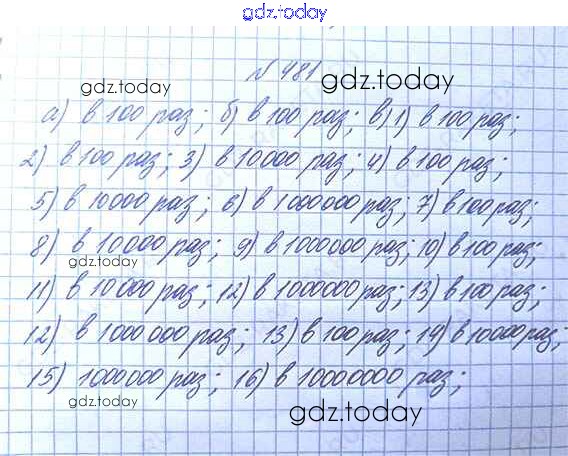 gdz.today
№ 481
gdz.today gdz.today
а) в 100 раз; б) в 100 раз; в) 1) в 100 раз;
2) в 100 раз; 3) в 10000 раз; 4) в 100 раз;
5) в 10000 раз; 6) в 1000000 раз; 7) в 100 раз;
8) в 10000 раз; 9) в 1000000 раз; 10) в 100 раз;
gdz.today
11) в 10000 раз; 12) в 1000000 раз; 13) в 100 раз;
12) в 1000000 раз; 13) в 100 раз; 14) в 10000 раз;
15) 1000000 раз; 16) в 10000000 раз;
gdz.today gdz.today